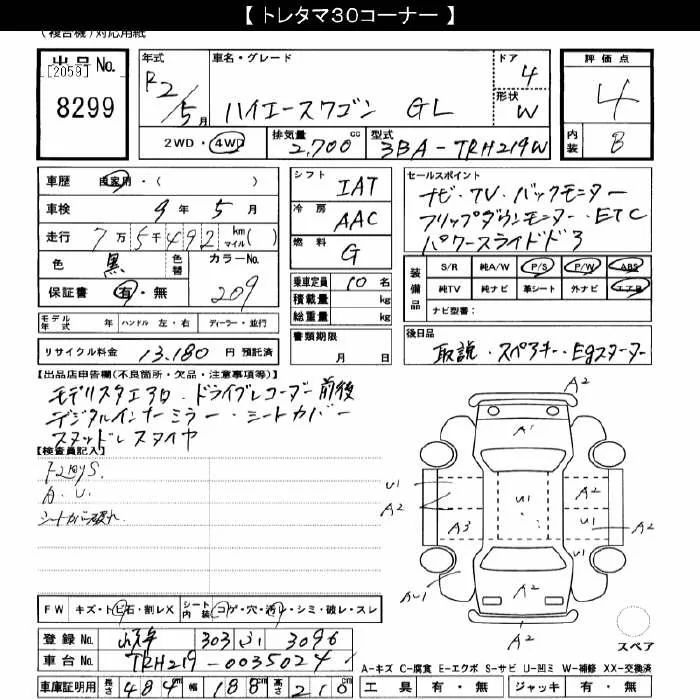 【 トレタマ30コーナー 】
(複合機)対応用紙
出品No.
[2059]
8299
年式 R2/5月
車名・グレード
ハイエースワゴン GL
ドア 4
形状 W
2WD・4WD
排気量 2,700 cc
型式 3BA-TRH219W
評価点
4
内装 B
車歴 自家用・( )
車検 9年 5月
走行 7万5千492 km マイル( )
色 黒 色替 カラーNo.
209
保証書 有・無
モデル年式 年 ハンドル 左・右 ディーラー・並行
リサイクル料金 13,180 円 預託済
シフト IAT
冷房 AAC
燃料 G
乗車定員 10 名
積載量 kg
総重量 kg
書類期限
月 日
セールスポイント
ナビ・TV・バックモニター
フリップダウンモニター・ETC
パワースライドド3
装備品
S/R 純A/W P/S P/W ABS
純TV 純ナビ 革シート 外ナビ エアB
ナビ型番:
後日品
取説・スペアキー・Egスターター
【出品店申告欄(不良箇所・欠品・注意事項等)】
モデリスタエアロ・ドライブレコーダー前後
デジタルインナーミラー・シートカバー
スタッドレスタイヤ
【検査員記入】
A.U.
シートカバー破れ
FW キズ・トビ石・割レX シート内装 コゲ・穴・汚レ・シミ・破レ・スレ
登録No. 303 ふ 3096
車台No. TRH219-0035024
車庫証明用 長さ 484 cm 幅 188 cm 高さ 218 cm
A2
A1
U1
A2
U1
A2
A3
U1
A2
U1
A2
AU1
A2
スペア
A-キズ C-腐食 E-エクボ S-サビ U-凹ミ W-補修 XX-交換済
工具 有・無 ジャッキ 有・無